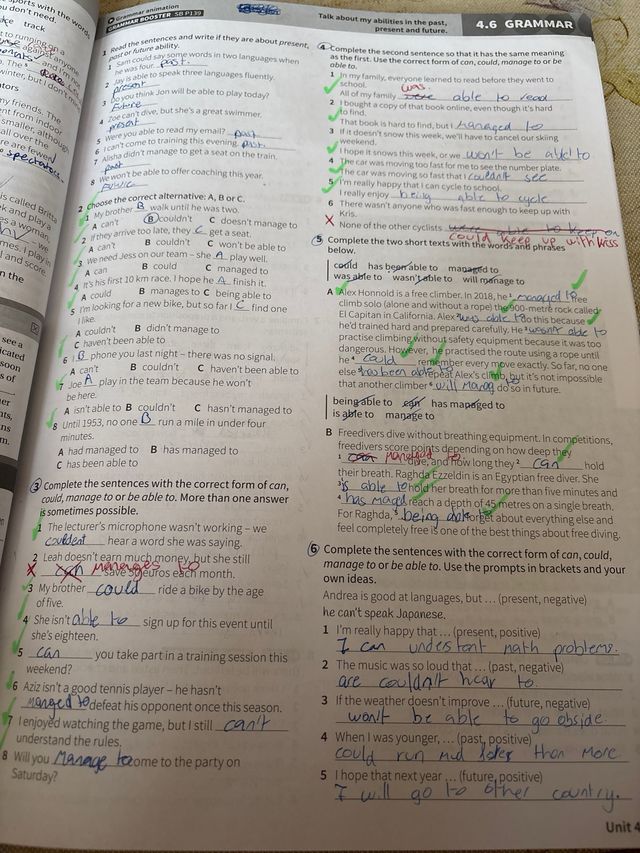 Grammar animation
GRAMMAR BOOSTER SB P139
Talk about my abilities in the past,
present and future.
4.6 GRAMMAR
1 Read the sentences and write if they are about present,
past or future ability.
1 Sam could say some words in two languages when
he was four. past.
2 Jay is able to speak three languages fluently.
present
3 Do you think Jon will be able to play today?
Future
4 Zoe can't dive, but she's a great swimmer.
present
5 Were you able to read my email? past
6 I can't come to training this evening.
7 Alisha didn't manage to get a seat on the train.
past
8 We won't be able to offer coaching this year.
2 Choose the correct alternative: A, B or C.
1 My brother B walk until he was two.
A can't B couldn't C doesn't manage to
2 If they arrive too late, they C get a seat.
A can't B couldn't C won't be able to
3 We need Jess on our team – she A play well.
A can B could C managed to
4 It's his first 10 km race. I hope he A finish it.
A could B manages to C being able to
5 I'm looking for a new bike, but so far I C find one
I like.
A couldn't B didn't manage to
C haven't been able to
6 I B phone you last night – there was no signal.
A can't B couldn't C haven't been able to
7 Joe A play in the team because he won't
be here.
A isn't able to B couldn't C hasn't managed to
8 Until 1953, no one B run a mile in under four
minutes.
A had managed to B has managed to
C has been able to
3 Complete the sentences with the correct form of can,
could, manage to or be able to. More than one answer
is sometimes possible.
1 The lecturer's microphone wasn't working – we
couldent hear a word she was saying.
2 Leah doesn't earn much money, but she still
can manages to save 50 euros each month.
3 My brother could ride a bike by the age
of five.
4 She isn't able to sign up for this event until
she's eighteen.
5 can you take part in a training session this
weekend?
6 Aziz isn't a good tennis player – he hasn't
manged to defeat his opponent once this season.
7 I enjoyed watching the game, but I still can't
understand the rules.
8 Will you Manage to come to the party on
Saturday?
4 Complete the second sentence so that it has the same meaning
as the first. Use the correct form of can, could, manage to or be
able to.
1 In my family, everyone learned to read before they went to
school. was.
All of my family were able to read
2 I bought a copy of that book online, even though it's hard
to find.
That book is hard to find, but I managed to
3 If it doesn't snow this week, we'll have to cancel our skiing
weekend.
I hope it snows this week, or we won't be able to
4 The car was moving too fast for me to see the number plate.
The car was moving so fast that I couldn't see
5 I'm really happy that I can cycle to school.
I really enjoy being able to cycle
6 There wasn't anyone who was fast enough to keep up with
Kris.
None of the other cyclists were able to keep on
could keep up with Kris
5 Complete the two short texts with the words and phrases
below.
could has been able to managed to
was able to wasn't able to will manage to
A Alex Honnold is a free climber. In 2018, he 1 managed to free
climb solo (alone and without a rope) the 900-metre rock called
El Capitan in California. Alex 2 was able to do this because
he'd trained hard and prepared carefully. He 3 wasn't able to
practise climbing without safety equipment because it was too
dangerous. However, he practised the route using a rope until
he 4 could remember every move exactly. So far, no one
else 5 has been able to repeat Alex's climb, but it's not impossible
that another climber 6 will Manag do so in future.
being able to can has managed to
is able to manage to
B Freedivers dive without breathing equipment. In competitions,
freedivers score points depending on how deep they
1 can managed to dive, and how long they 2 can hold
their breath. Raghda Ezzeldin is an Egyptian free diver. She
3 is able to hold her breath for more than five minutes and
4 has maged reach a depth of 45 metres on a single breath.
For Raghda, 5 being able forget about everything else and
feel completely free is one of the best things about free diving.
6 Complete the sentences with the correct form of can, could,
manage to or be able to. Use the prompts in brackets and your
own ideas.
Andrea is good at languages, but … (present, negative)
he can't speak Japanese.
1 I'm really happy that … (present, positive)
I can understant math problems.
2 The music was so loud that … (past, negative)
are couldn't hear to.
3 If the weather doesn't improve … (future, negative)
won't be able to go obside
4 When I was younger, … (past, positive)
could run than More
5 I hope that next year … (future, positive)
I will go to other country.
Unit 4